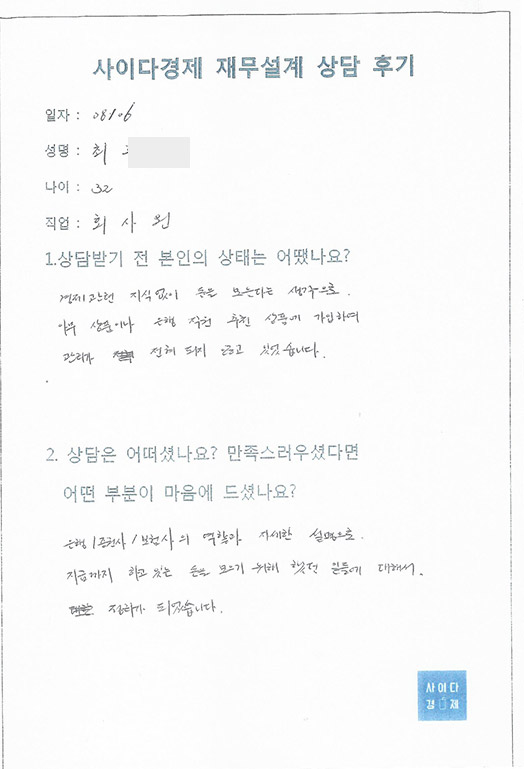 사이다경제 재무설계 상담 후기
일자 : 08/06
성명 : 최
나이 : 32
직업 : 회사원
1.상담받기 전 본인의 상태는 어땠나요?
경제관련 지식없이 돈을 모은다는 생각으로.
아무 상품이나 은행 직원 추천 상품에 가입하여
관리가 전혀 되지 않고 있었습니다.
2. 상담은 어떠셨나요? 만족스러우셨다면
어떤 부분이 마음에 드셨나요?
은행/증권사/보험사의 역할과 자세한 설명으로.
지금까지 하고 있는 돈을 모으기 위해 했던 일들에 대해서.
정리가 되었습니다.
사이다
경제